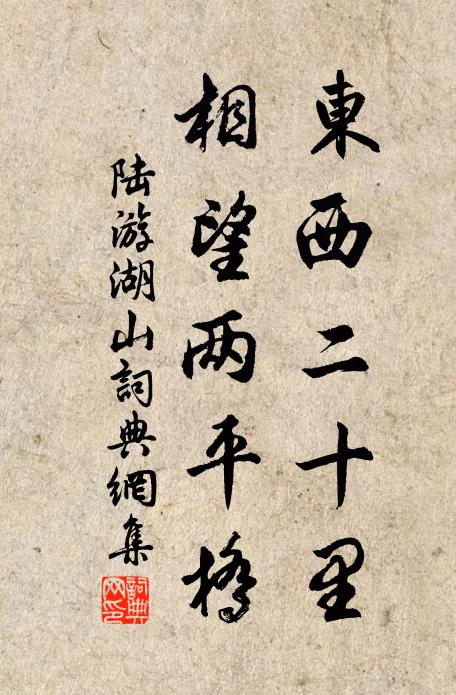 東西二十里
相望两平橋
陆游湖山詞典網集
詞典網印